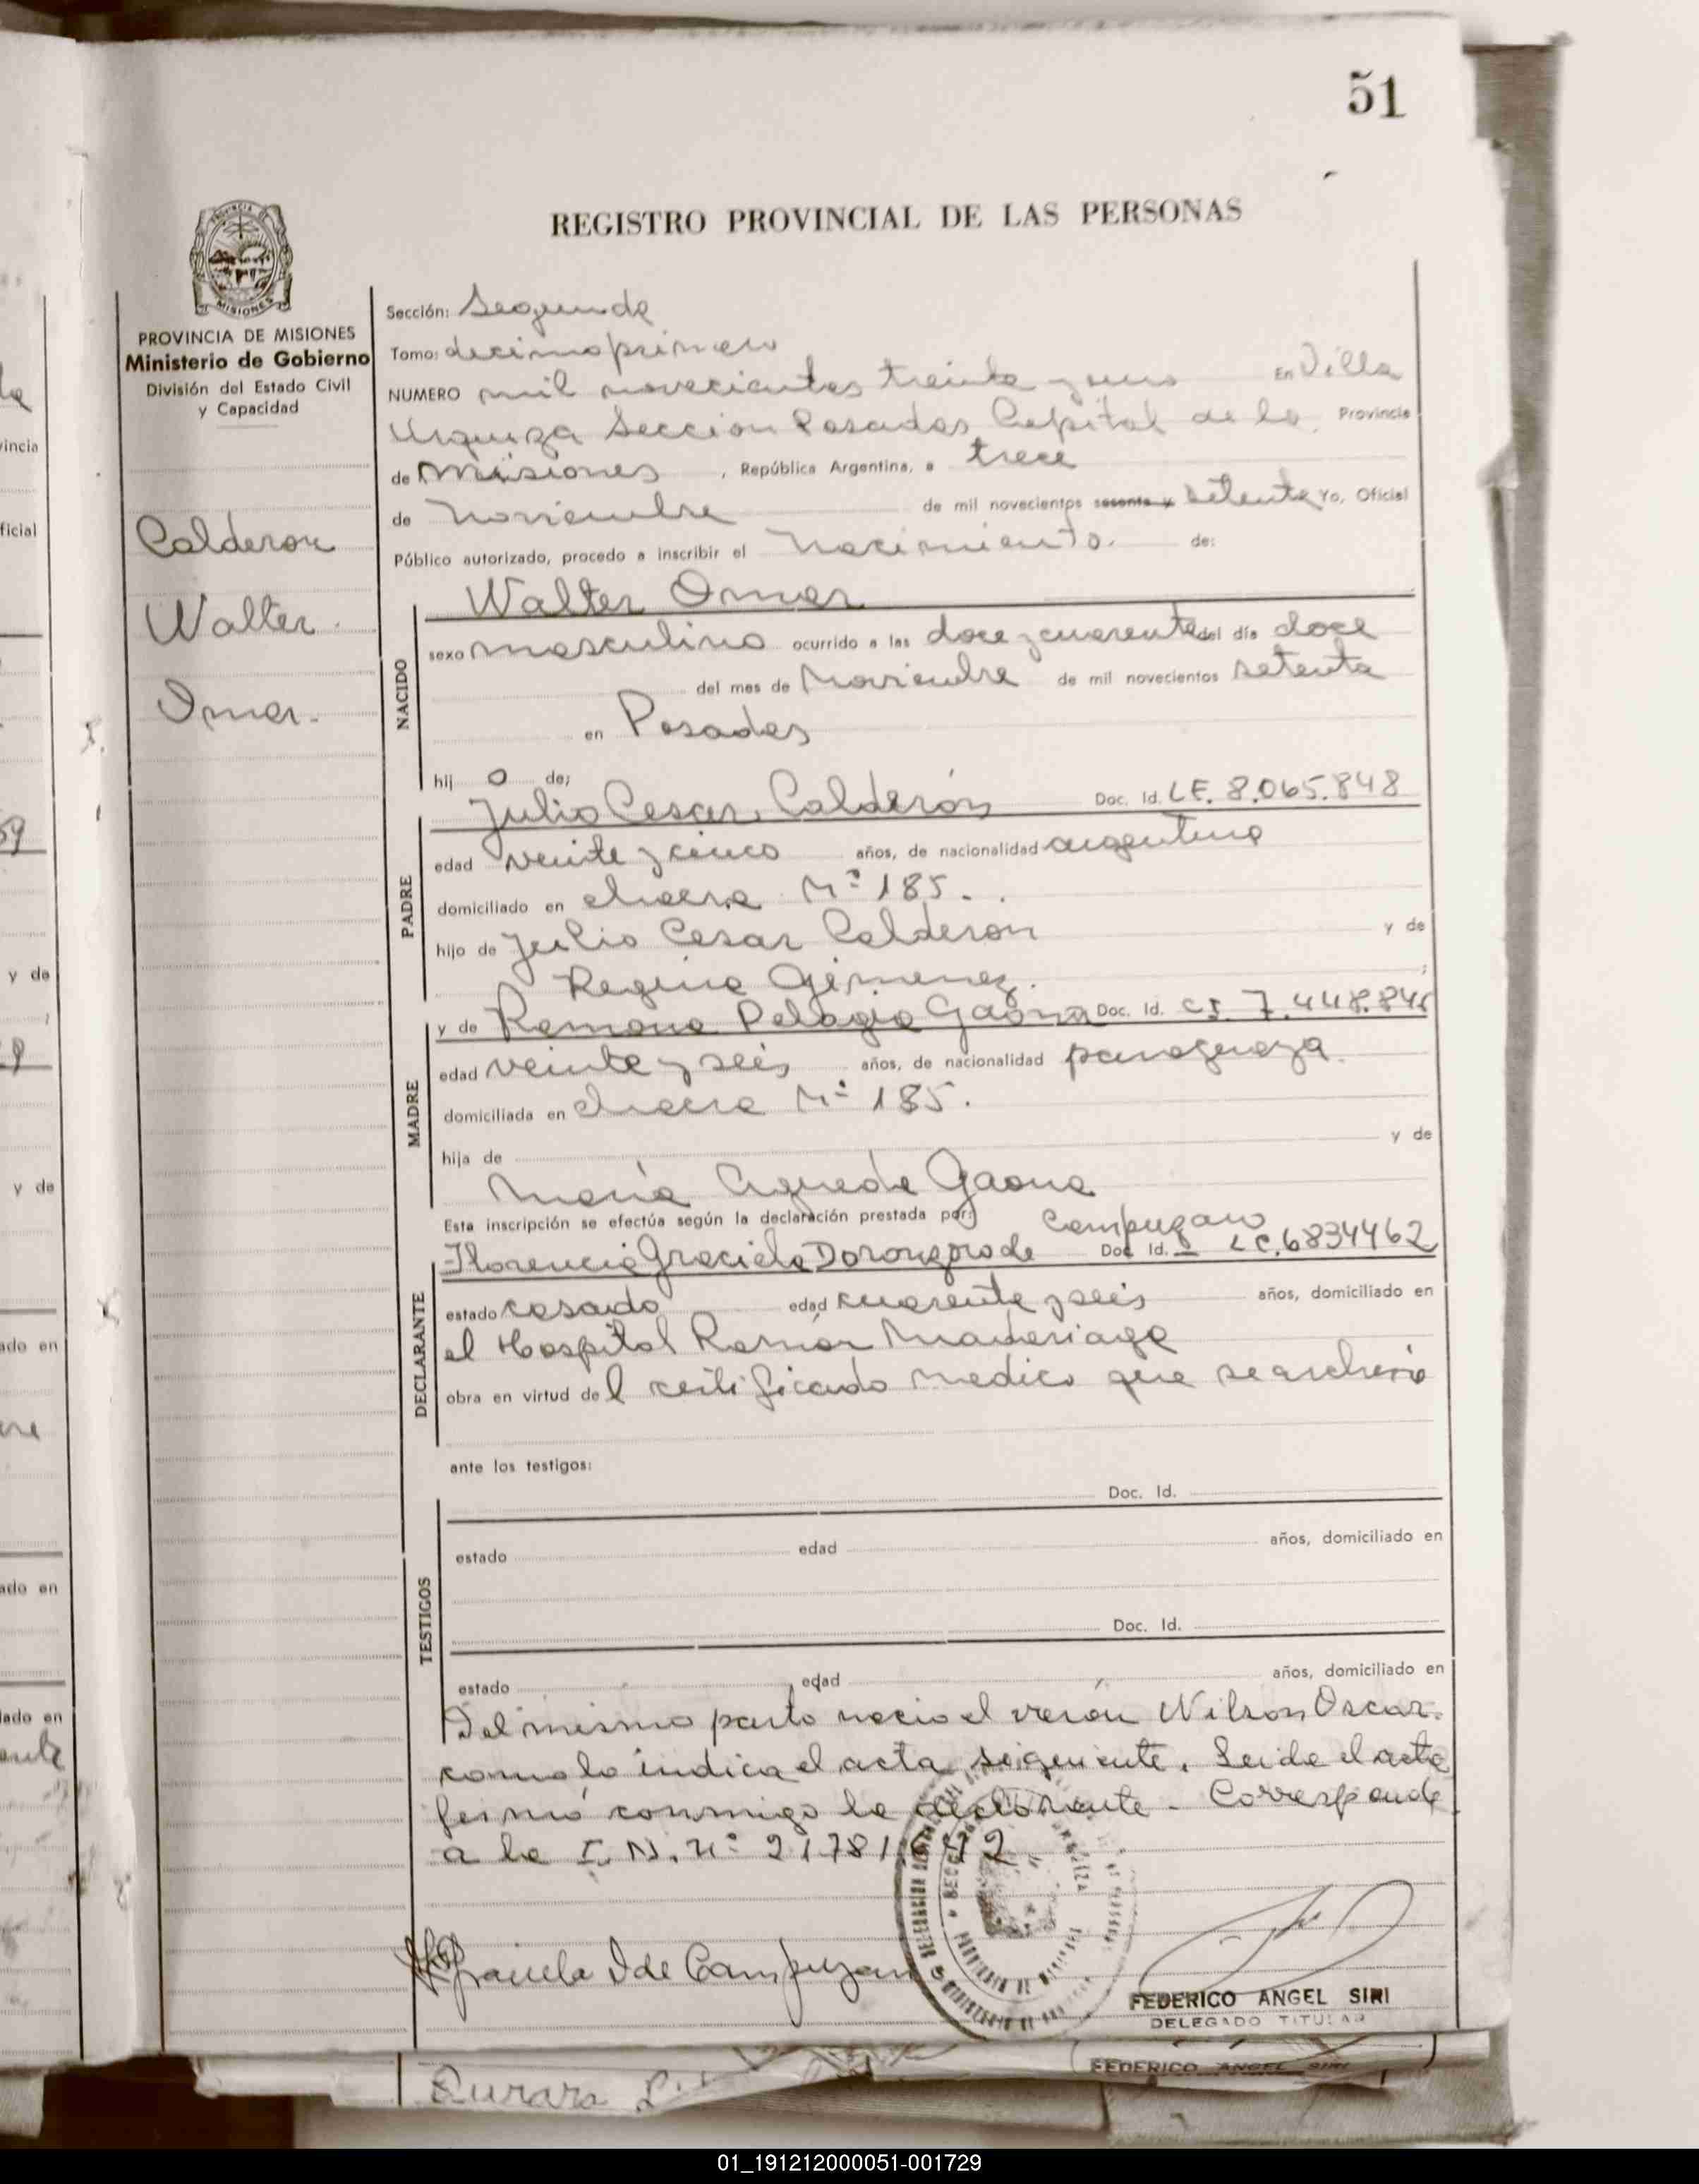 51
REGISTRO PROVINCIAL DE LAS PERSONAS
PROVINCIA DE MISIONES
Ministerio de Gobierno
División del Estado Civil
y Capacidad
Calderon
Walter
Omar.
Sección: Segunda
Tomo: decimoprimero
NUMERO mil novecientos treinta y uno En Villa
Urquiza Seccion Posadas Capital de la Provincia
de Misiones, República Argentina, a trece
de Noviembre de mil novecientos sesenta y setenta Yo, Oficial
Público autorizado, procedo a inscribir el Nacimiento. de:
NACIDO
Walter Omar
sexo masculino ocurrido a las doce y cuarenta del día doce
del mes de Noviembre de mil novecientos setenta
en Posadas
hij o de;
PADRE
Julio Cesar Calderón Doc. Id. LE. 8.065.848
edad veinte y cinco años, de nacionalidad argentina
domiciliado en chacra Nº 185.
hijo de Julio Cesar Calderon y de
Regina Gimenez.
MADRE
y de Ramona Pelagia Gaona Doc. Id. CI. 7.448.845
edad veinte y seis años, de nacionalidad paraguaya.
domiciliada en chacra Nº 185.
hija de y de
María Agueda Gaona
Esta inscripción se efectúa según la declaración prestada por: Campuzano
DECLARANTE
Florencia Graciela Doronzoro de Doc Id. LC. 6834462
estado casado edad cuarenta y seis años, domiciliado en
el Hospital Ramón Madariaga
obra en virtud del certificado medico que se archiva
ante los testigos:
TESTIGOS
Doc. Id.
estado edad años, domiciliado en
Doc. Id.
estado edad años, domiciliado en
Del mismo parto nacio el varón Wilson Oscar.
como lo indica el acta siguiente. Leida el acta
firmó conmigo la declarante - Corresponde
a la I. N. nº
Graciela D de Campuzano
FEDERICO ANGEL SIRI
DELEGADO TITULAR
FEDERICO ANGEL SIRI
01_191212000051-001729